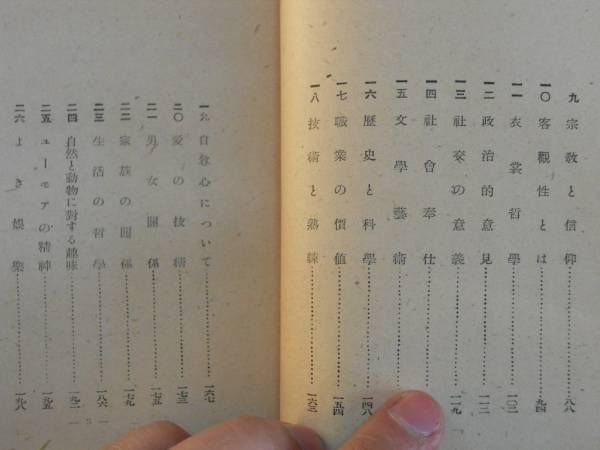 九 宗敎と信仰……八八
一〇 客觀性とは……九四
一一 衣裳哲學……一〇二
一二 政治的意見……一一二
一三 社交の意義……一一九
一四 社會奉仕……
一五 文學藝術……
一六 歷史と科學……一四八
一七 職業の價値……一五四
一八 技術と熟練……一六三
一九 自尊心について……一六七
二〇 愛の技術……一七三
二一 男女關係……一七五
二二 家族の關係……一七九
二三 生活の哲學……一八六
二四 自然と動物に對する趣味……一九二
二五 ユーモアの精神……一九五
二六 よき娛樂……一九八